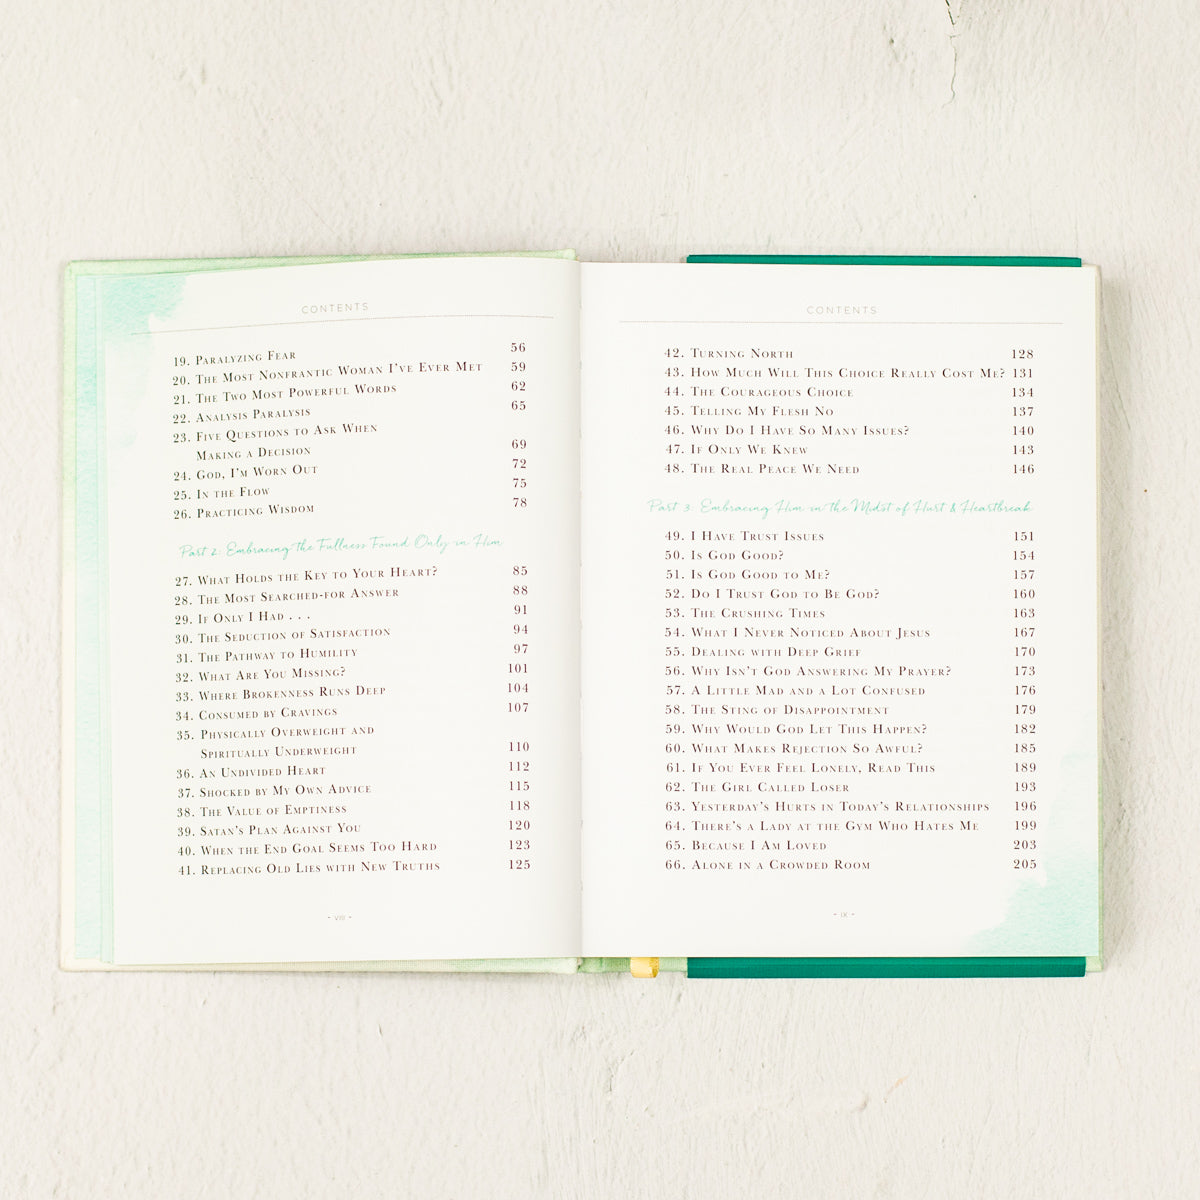 CONTENTS
19. Paralyzing Fear 56
20. The Most Nonfrantic Woman I've Ever Met 59
21. The Two Most Powerful Words 62
22. Analysis Paralysis 65
23. Five Questions to Ask When
Making a Decision 69
24. God, I'm Worn Out 72
25. In the Flow 75
26. Practicing Wisdom 78
Part 2: Embracing the Fullness Found Only in Him
27. What Holds the Key to Your Heart? 85
28. The Most Searched-for Answer 88
29. If Only I Had . . . 91
30. The Seduction of Satisfaction 94
31. The Pathway to Humility 97
32. What Are You Missing? 101
33. Where Brokenness Runs Deep 104
34. Consumed by Cravings 107
35. Physically Overweight and
Spiritually Underweight 110
36. An Undivided Heart 112
37. Shocked by My Own Advice 115
38. The Value of Emptiness 118
39. Satan's Plan Against You 120
40. When the End Goal Seems Too Hard 123
41. Replacing Old Lies with New Truths 125
- viii -
CONTENTS
42. Turning North 128
43. How Much Will This Choice Really Cost Me? 131
44. The Courageous Choice 134
45. Telling My Flesh No 137
46. Why Do I Have So Many Issues? 140
47. If Only We Knew 143
48. The Real Peace We Need 146
Part 3: Embracing Him in the Midst of Hurt & Heartbreak
49. I Have Trust Issues 151
50. Is God Good? 154
51. Is God Good to Me? 157
52. Do I Trust God to Be God? 160
53. The Crushing Times 163
54. What I Never Noticed About Jesus 167
55. Dealing with Deep Grief 170
56. Why Isn't God Answering My Prayer? 173
57. A Little Mad and a Lot Confused 176
58. The Sting of Disappointment 179
59. Why Would God Let This Happen? 182
60. What Makes Rejection So Awful? 185
61. If You Ever Feel Lonely, Read This 189
62. The Girl Called Loser 193
63. Yesterday's Hurts in Today's Relationships 196
64. There's a Lady at the Gym Who Hates Me 199
65. Because I Am Loved 203
66. Alone in a Crowded Room 205
- ix -